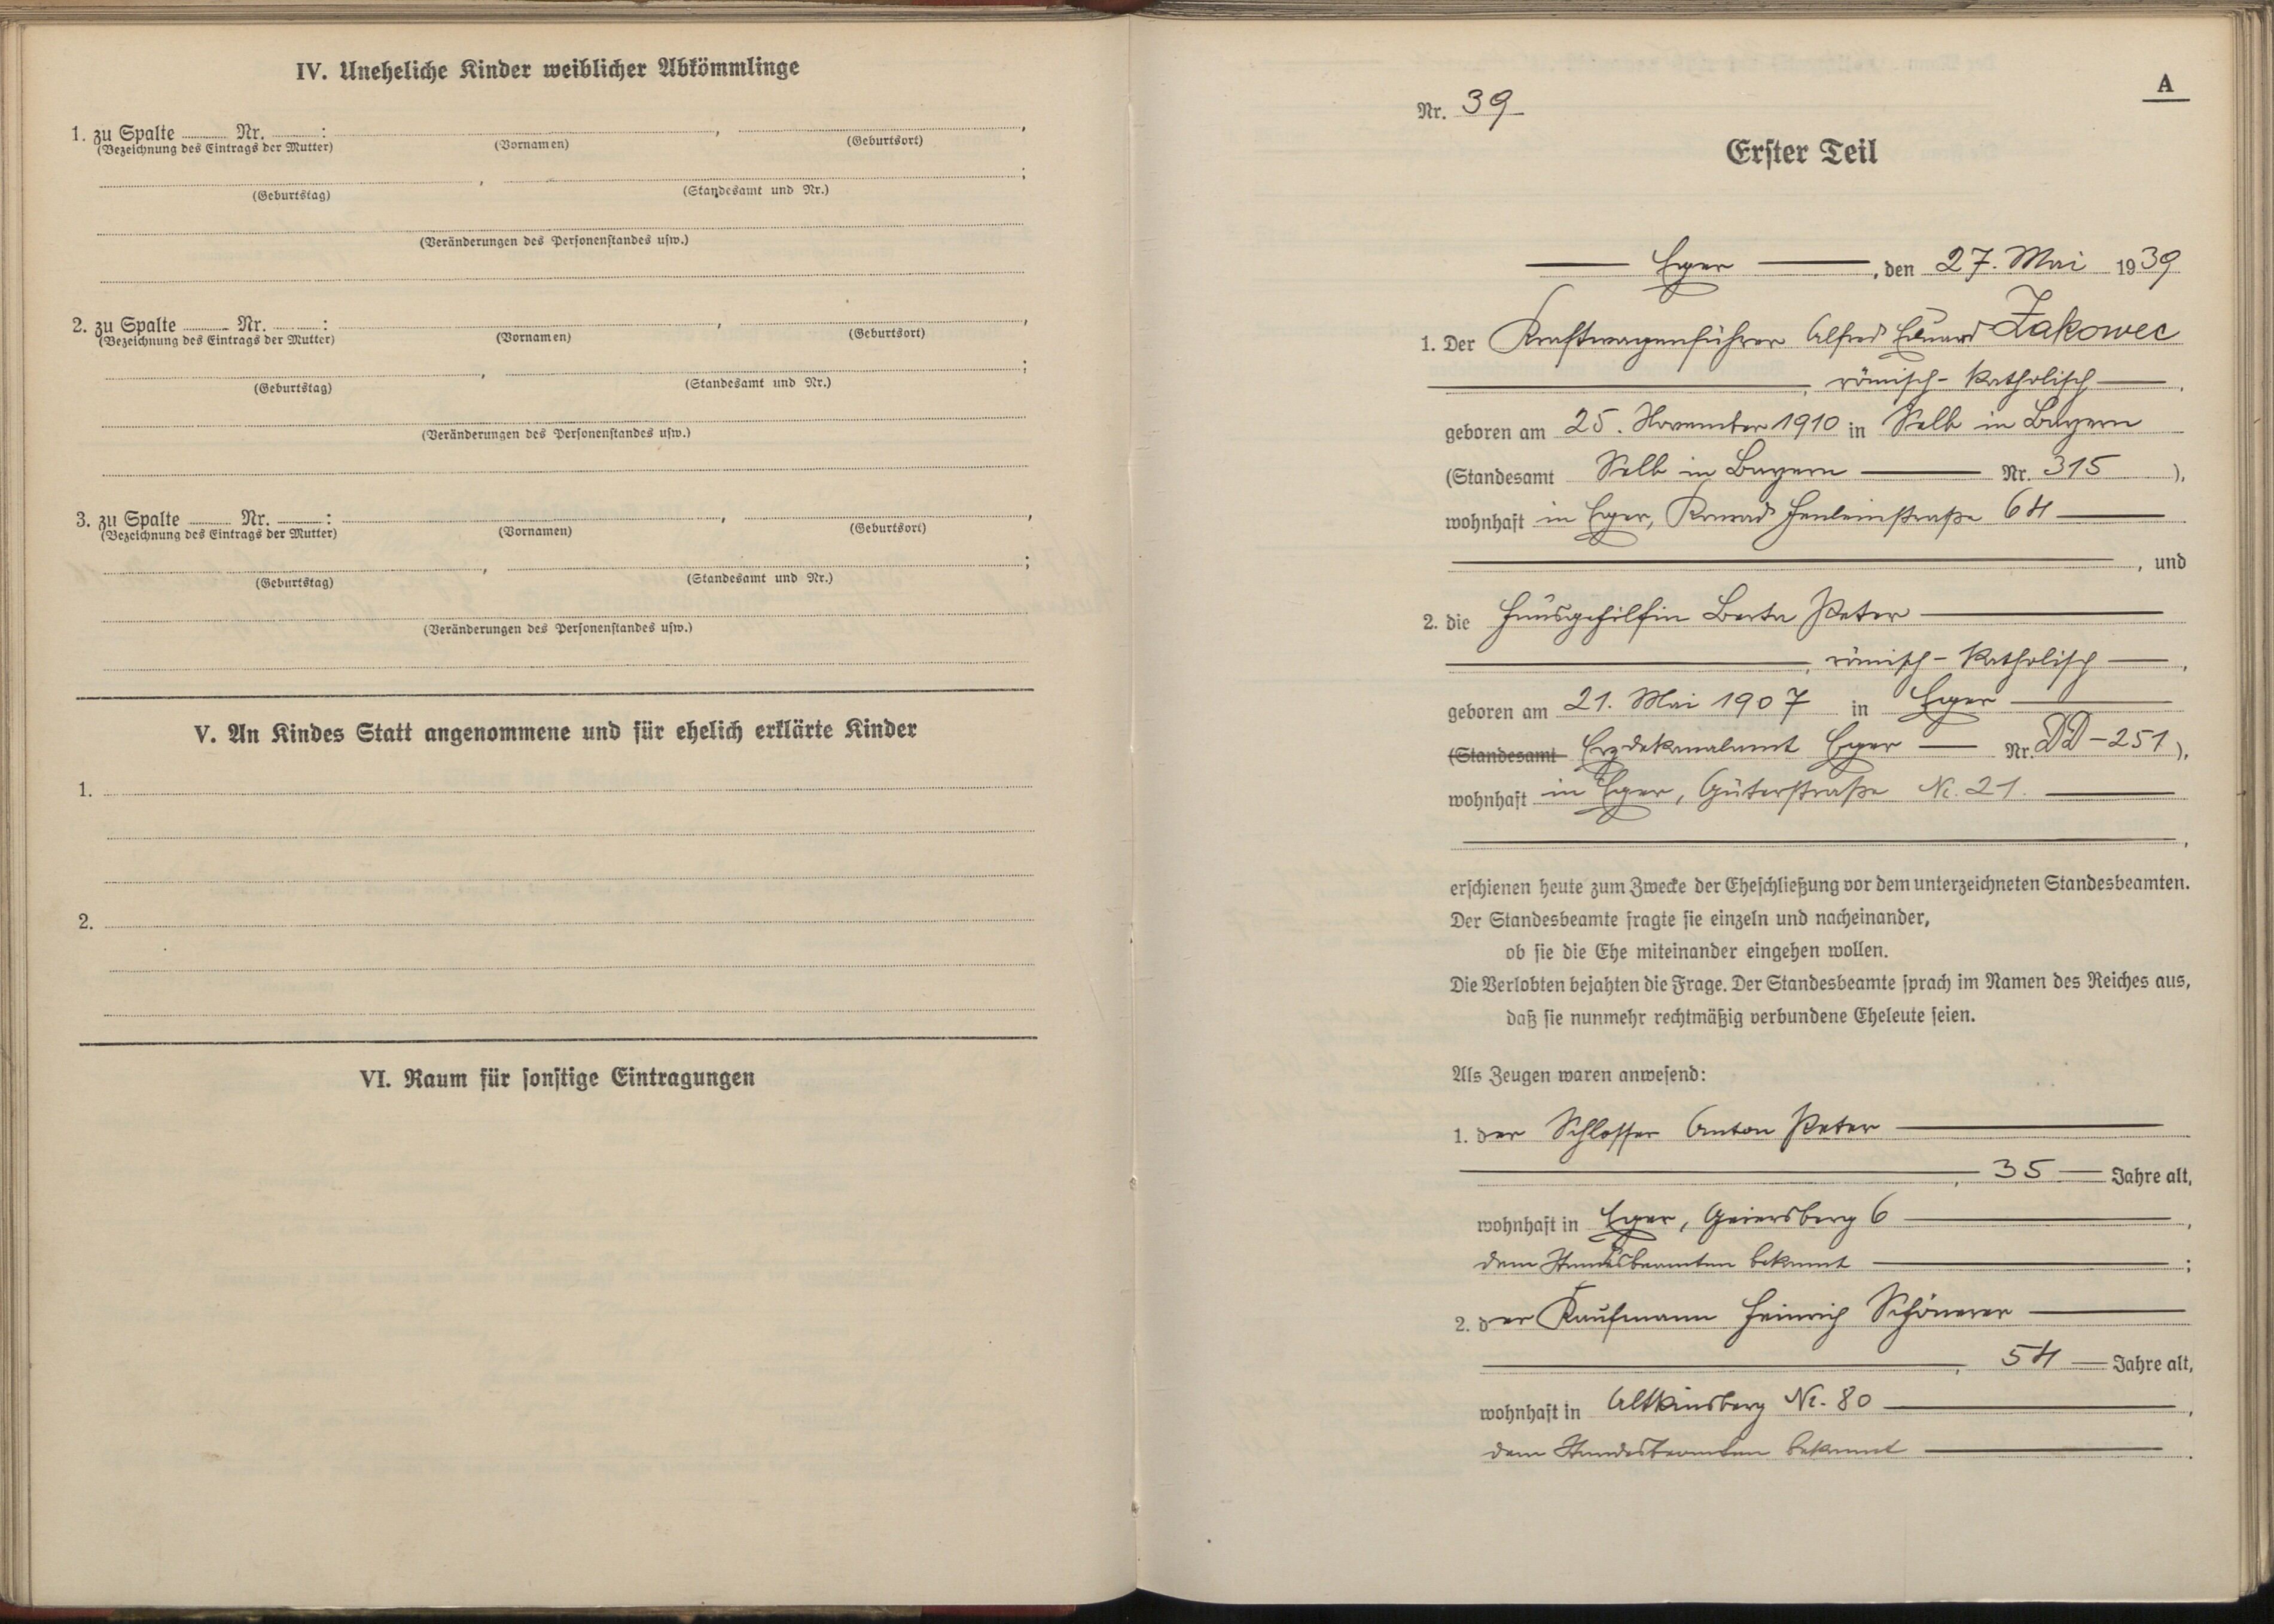 IV. Uneheliche Kinder weiblicher Abkömmlinge
1. zu Spalte ........ Nr. ........:
(Bezeichnung des Eintrags der Mutter) (Vornamen) , (Geburtsort) ,
(Geburtstag) , (Standesamt und Nr.) ;
(Veränderungen des Personenstandes usw.)
2. zu Spalte ........ Nr. ........:
(Bezeichnung des Eintrags der Mutter) (Vornamen) , (Geburtsort) ,
(Geburtstag) , (Standesamt und Nr.) ;
(Veränderungen des Personenstandes usw.)
3. zu Spalte ........ Nr. ........:
(Bezeichnung des Eintrags der Mutter) (Vornamen) , (Geburtsort) ,
(Geburtstag) , (Standesamt und Nr.) ;
(Veränderungen des Personenstandes usw.)
V. An Kindes Statt angenommene und für ehelich erklärte Kinder
1.
2.
VI. Raum für sonstige Eintragungen
A
Nr. 39
Erster Teil
Eger, den 27. Mai 1939
1. Der Kraftwagenführer Alfred Eduard Zakowec
, römisch-katholisch,
geboren am 25. November 1910 in Selb in Bayern
(Standesamt Selb in Bayern Nr. 315),
wohnhaft in Eger, Konrad Henleinstraße 64
, und
2. die Hausgehilfin Berta Peter
, römisch-katholisch,
geboren am 21. Mai 1907 in Eger
(Standesamt Erzdekanalamt Eger Nr. DD-251),
wohnhaft in Eger, Güterstraße Nr. 21.
,
erschienen heute zum Zwecke der Eheschließung vor dem unterzeichneten Standesbeamten.
Der Standesbeamte fragte sie einzeln und nacheinander,
ob sie die Ehe miteinander eingehen wollen.
Die Verlobten bejahten die Frage. Der Standesbeamte sprach im Namen des Reiches aus,
daß sie nunmehr rechtmäßig verbundene Eheleute seien.
Als Zeugen waren anwesend:
1. der Schlosser Anton Peter
, 35 Jahre alt,
wohnhaft in Eger, Geiersberg 6,
dem Standesbeamten bekannt;
2. der Kaufmann Heinrich Schönerer
, 54 Jahre alt,
wohnhaft in Altkinsberg Nr. 80,
dem Standesbeamten bekannt.